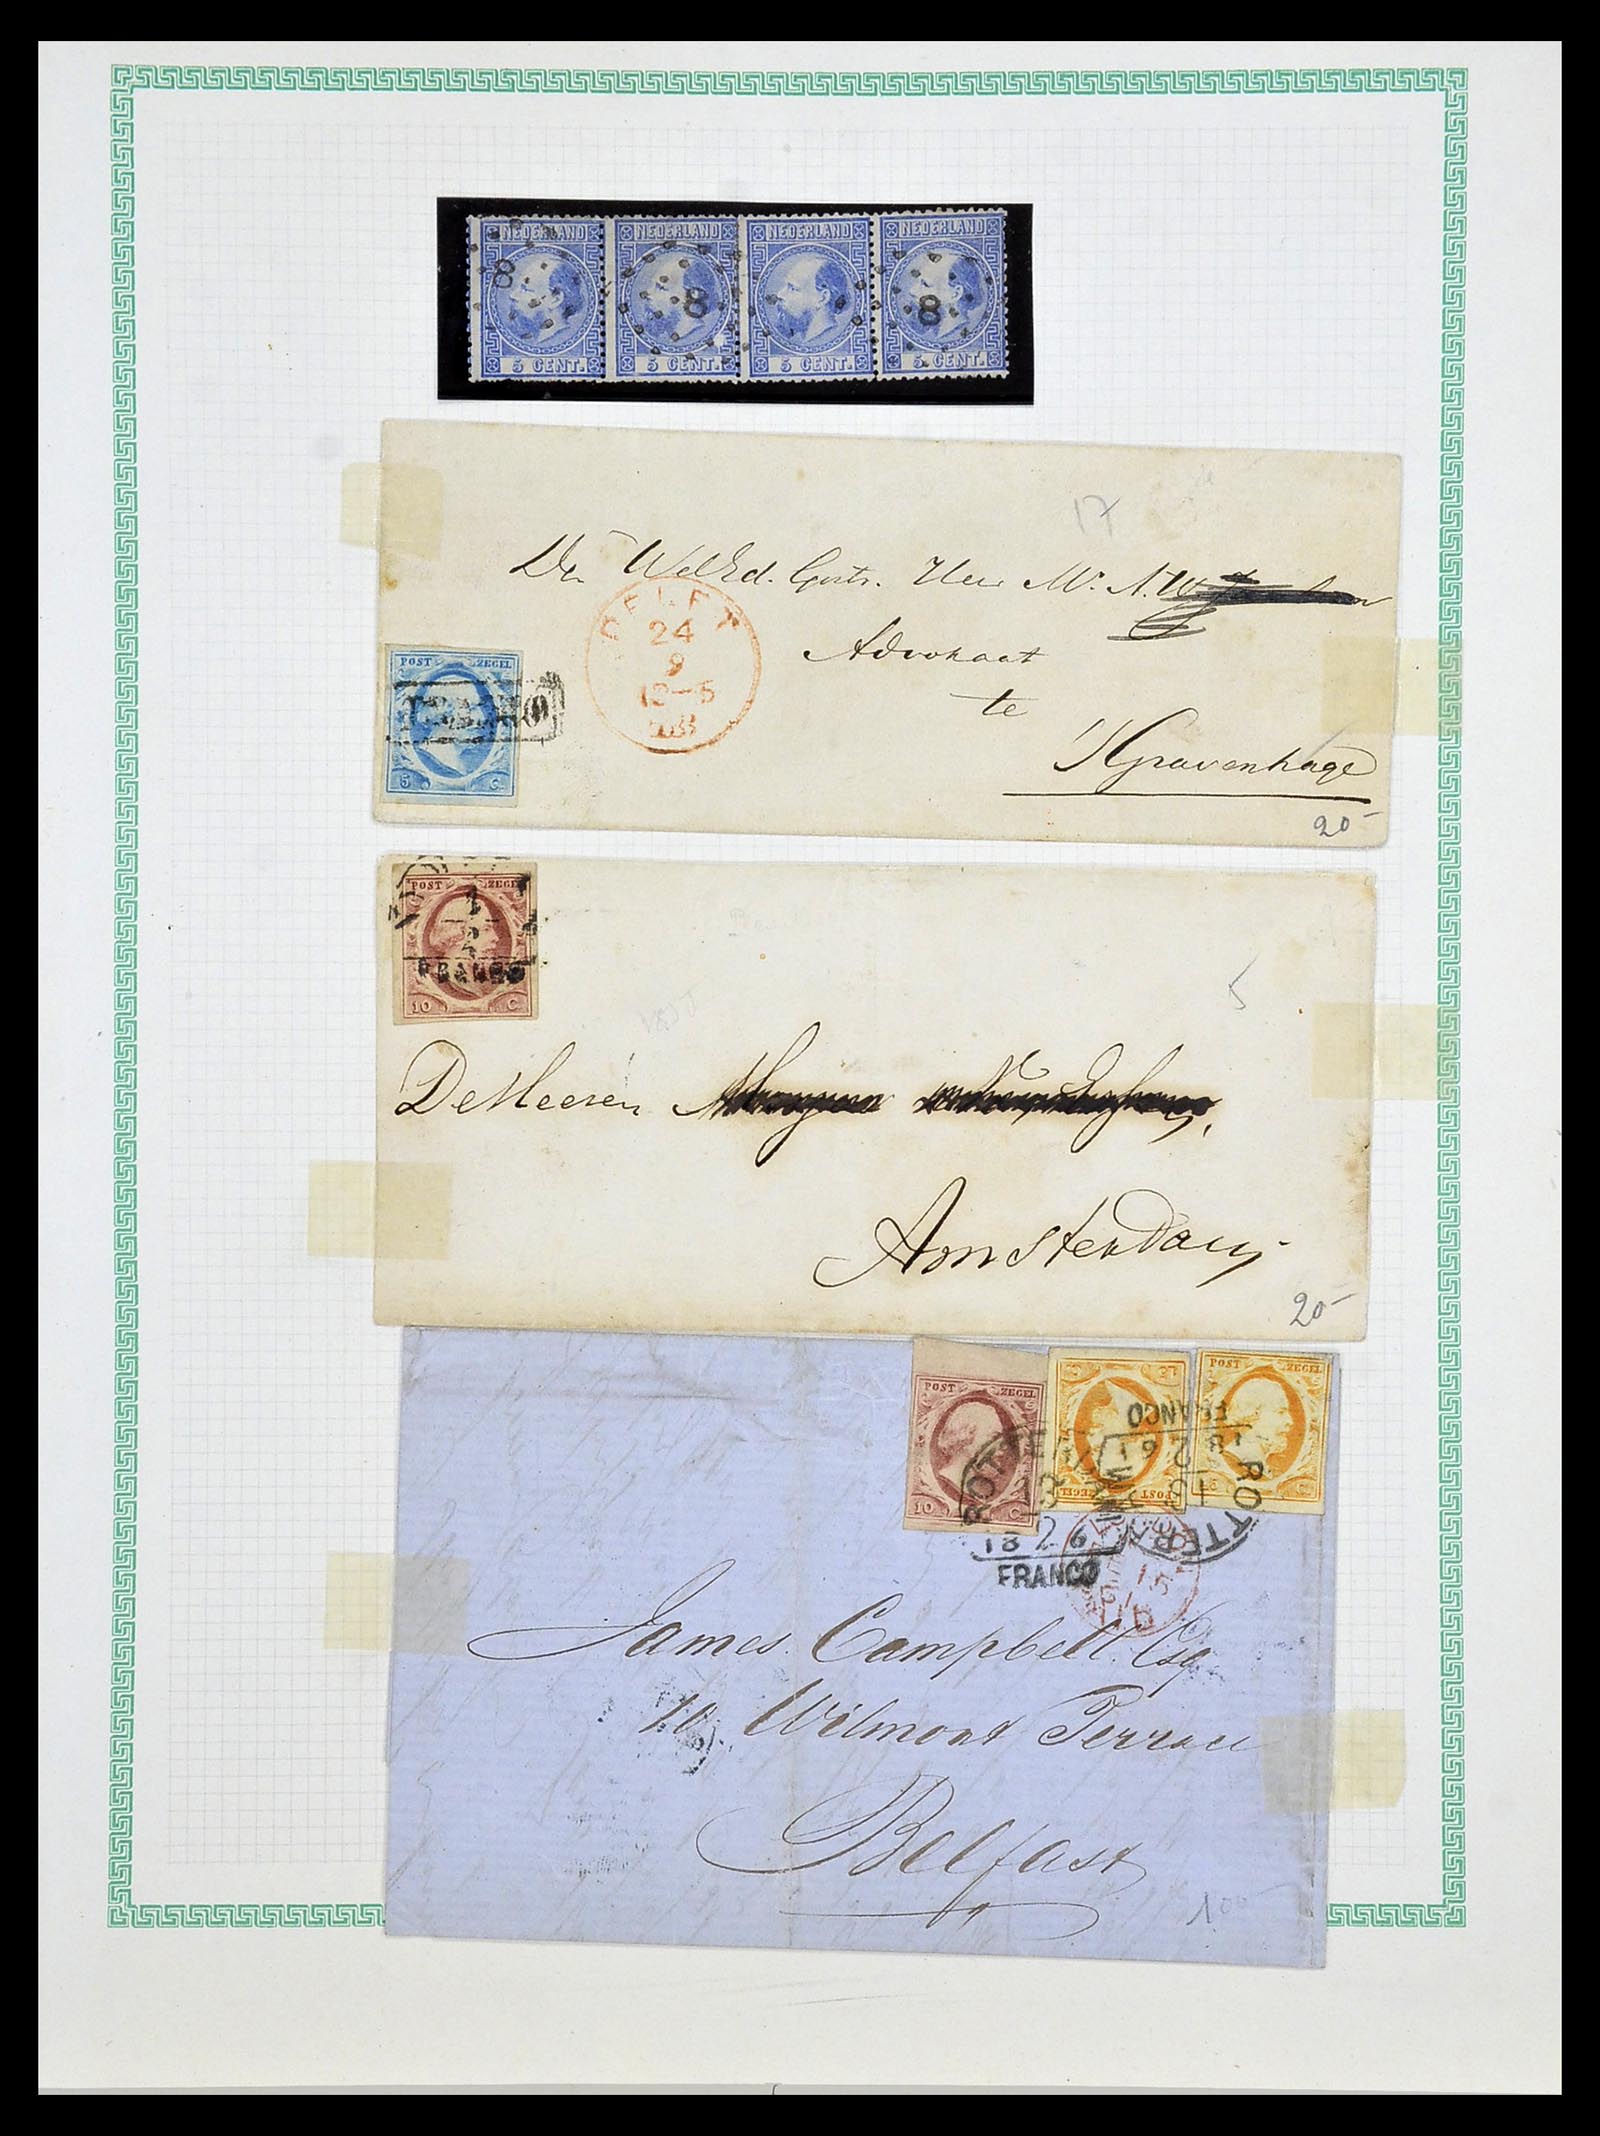 NEDERLAND NEDERLAND NEDERLAND NEDERLAND
8 8 8
5 CENT. 5 CENT. 5 CENT. 5 CENT.
17
Den WelEd. Gestr. Heer Mr. A. W.
DELFT
24
9
12-5
Advokaat
te
POST ZEGEL
FRANCO
5 C.
'sGravenhage
20-
POST ZEGEL
FRANCO
10 C.
5
De Heeren
Amsterdam
20-
POST ZEGEL
10 C.
POST ZEGEL
15 C.
POST ZEGEL
ROTTERDAM
18 2 6
FRANCO
ROTTERDAM
18 2 61
FRANCO
James Campbell. Esq
10 Wilmont Terrace
Belfast
100-